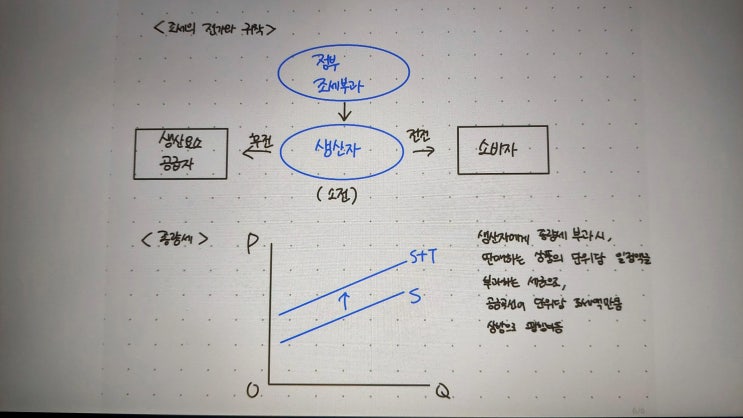 <조세의 전가와 귀착>
정부
조세부과
생산요소
공급자
후전
생산자
전전
소비자
(소전)
<종량세>
P
S+T
S
O
Q
생산자에게 종량세 부과시,
판매하는 상품의 단위당 일정액을
부과하는 세금으로,
공급곡선이 단위당 조세액만큼
상방으로 평행이동